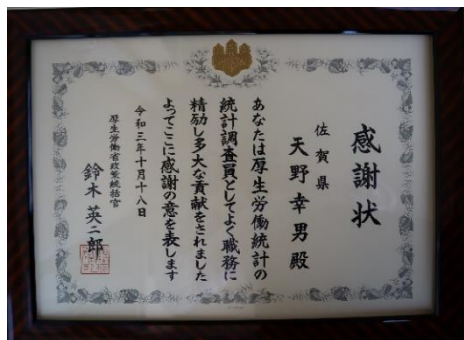 感謝状
佐賀県
天野幸男殿
あなたは厚生労働統計の
統計調査員としてよく職務に
精励し多大な貢献をされました
よってここに感謝の意を表します
令和三年十月十八日
厚生労働省政策統括官
鈴木英二郎